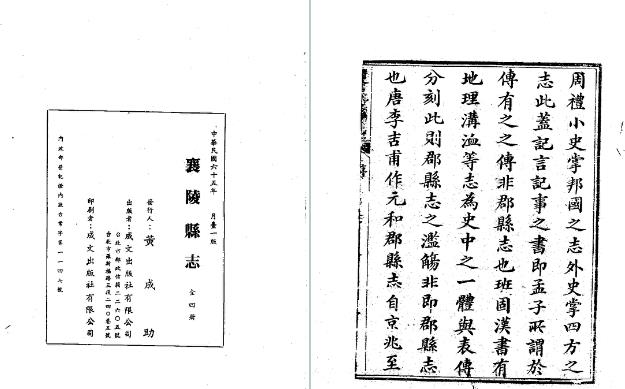 周禮小史掌邦國之志外史掌四方之
志此蓋記言記事之書即孟子所謂於
傳有之之傳非郡縣志也班固漢書有
地理溝洫等志為史中之一體與表傳
分刻此則郡縣志之濫觴非即郡縣志
也唐李吉甫作元和郡縣志自京兆至
中華民國六十五年 月臺一版
襄陵縣志 全四冊
發行人：黃成助
出版者：成文出版社有限公司
印刷者：成文出版社有限公司